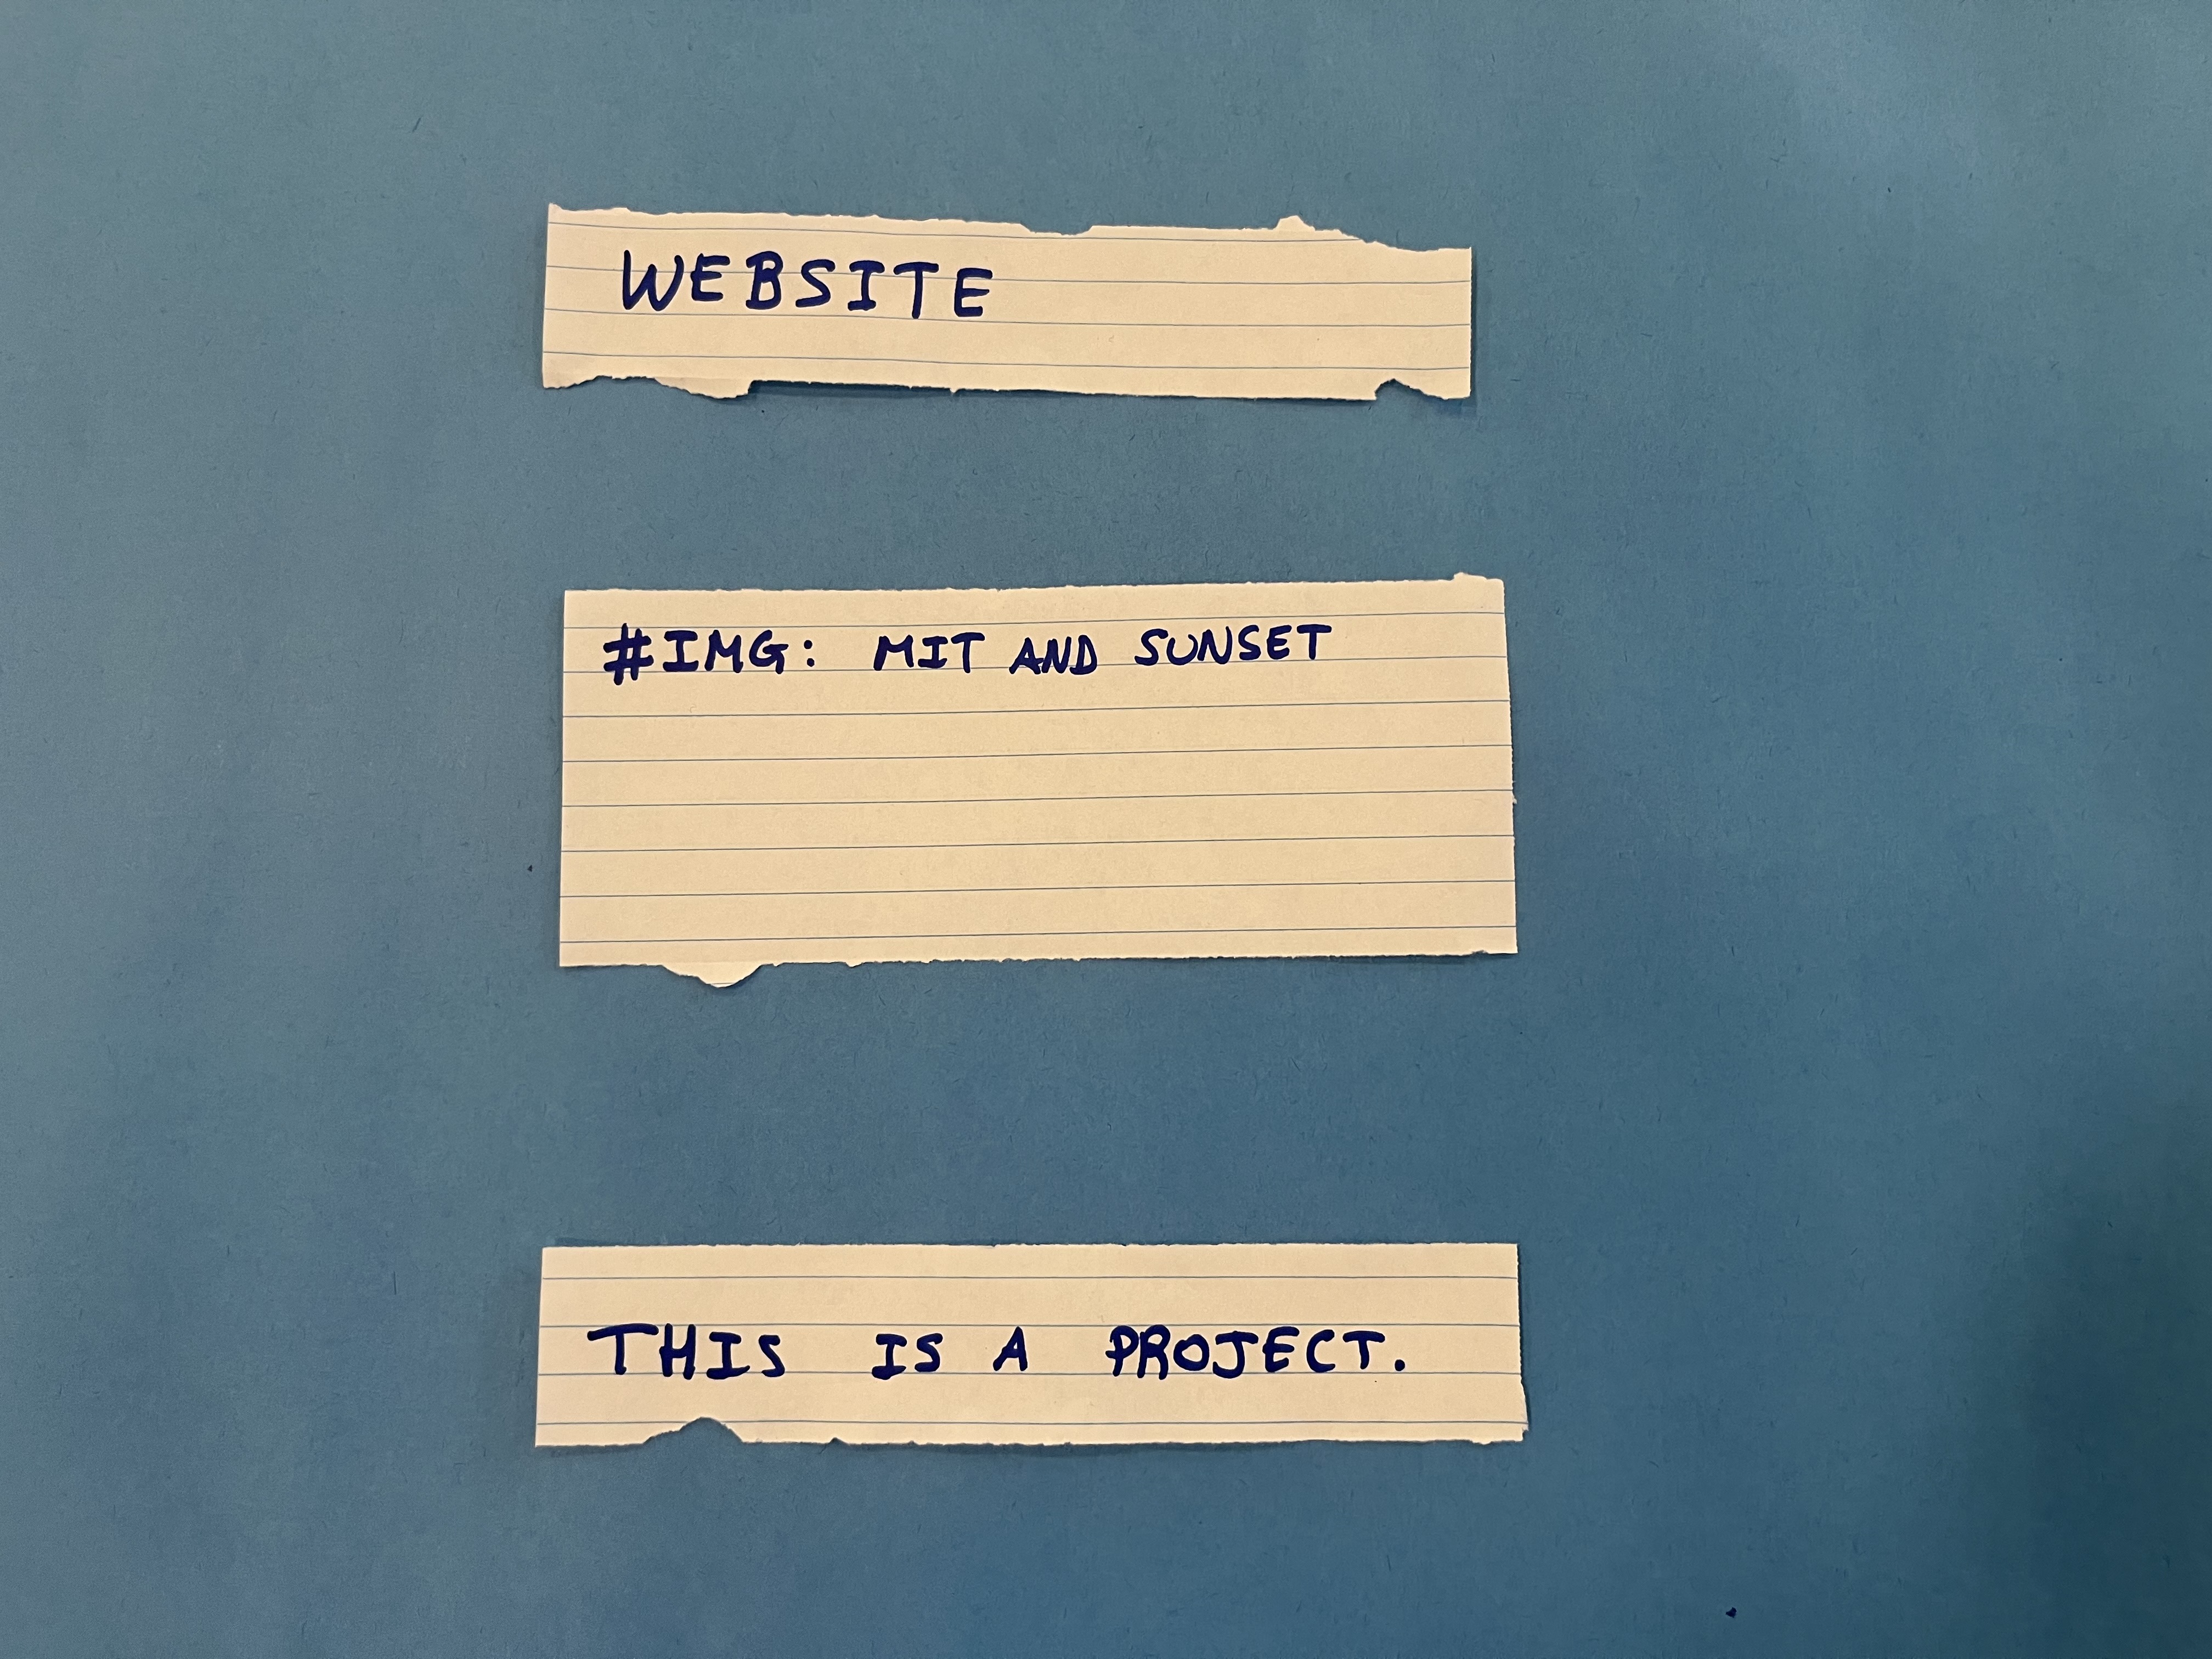 WEBSITE
#IMG: MIT AND SUNSET
THIS IS A PROJECT.